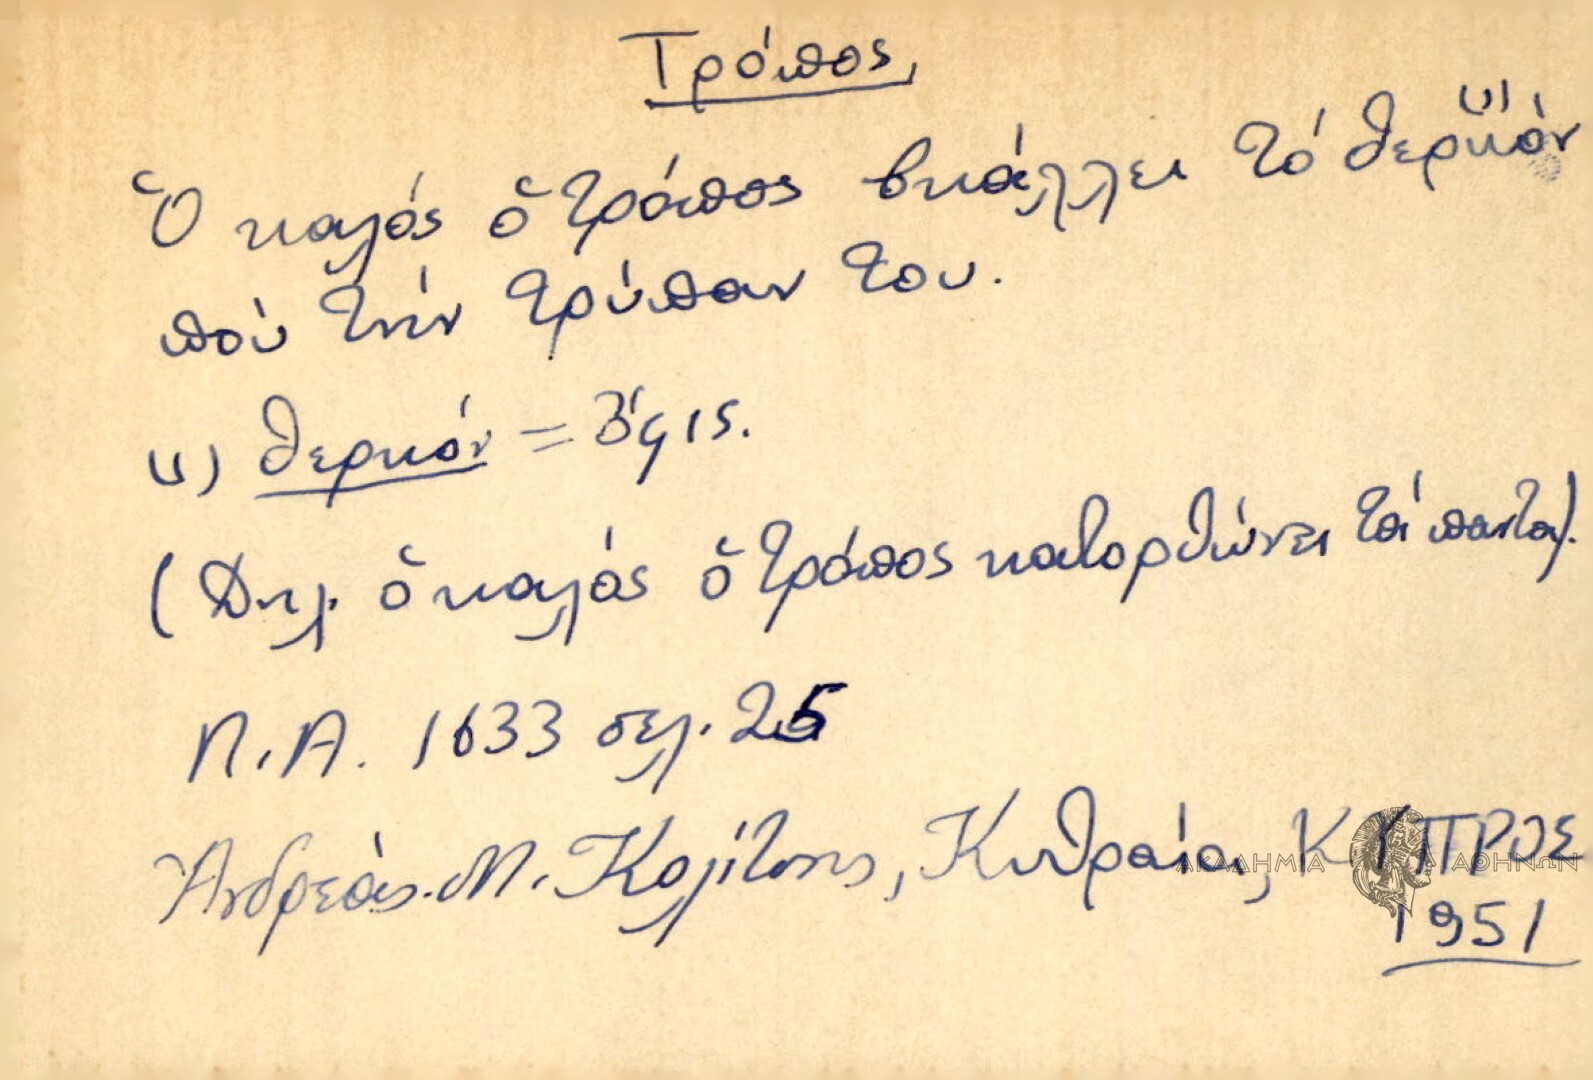 Τρόπος
Ὁ καλός ὁ τρόπος βκάλλει τό θερκόν υ)
πού τήν τρύπαν του.
υ) θερκόν = ὄφις.
(Δηλ. ὁ καλός ὁ τρόπος κατορθώνει τά πάντα).
Λ.Α. 1633 σελ. 25
Ἀνδρεάς Μ. Κολίτσης, Κυθραία, ΚΥΠΡΟΣ
ΑΚΑΔΗΜΙΑ ΑΘΗΝΩΝ
1951